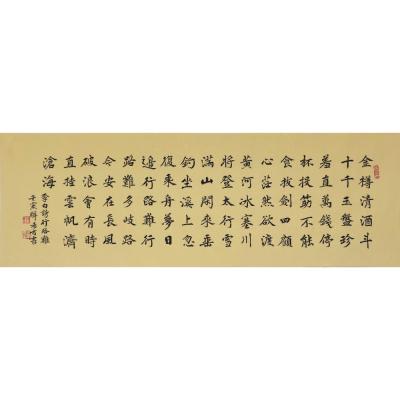 金樽清酒斗
十千玉盤珍
羞直萬錢停
杯投筯不能
食拔劍四顧
心茫然欲渡
黃河冰塞川
將登太行雪
滿山閑來垂
釣坐溪上忽
復乘舟夢日
邊行路難行
路難多歧路
今安在長風
破浪會有時
直挂雲帆濟
滄海
李白詩行路難
壬寅書